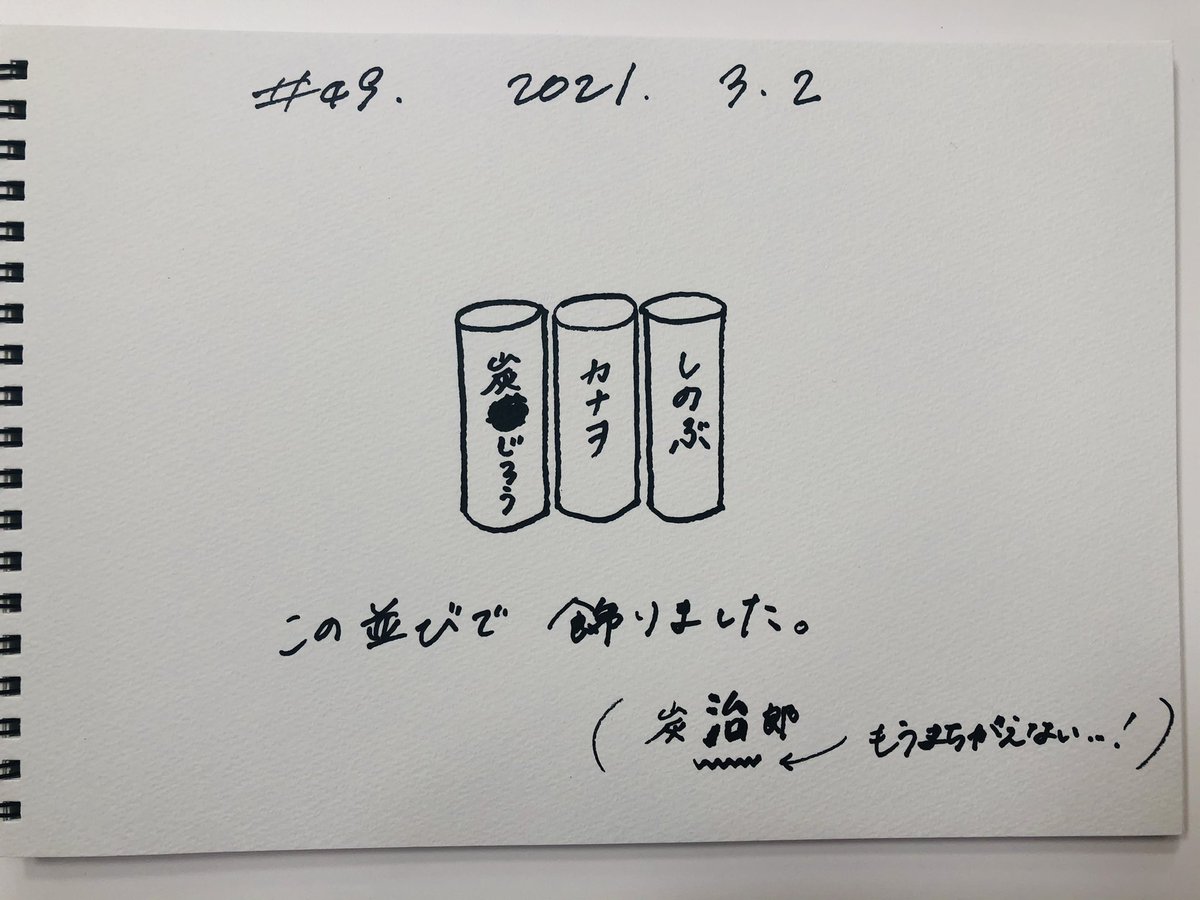 #49. 2021. 3.2
炭じろう
カナヲ
しのぶ
この並びで 飾りました。
(炭治郎 ← もうまちがえない..!)